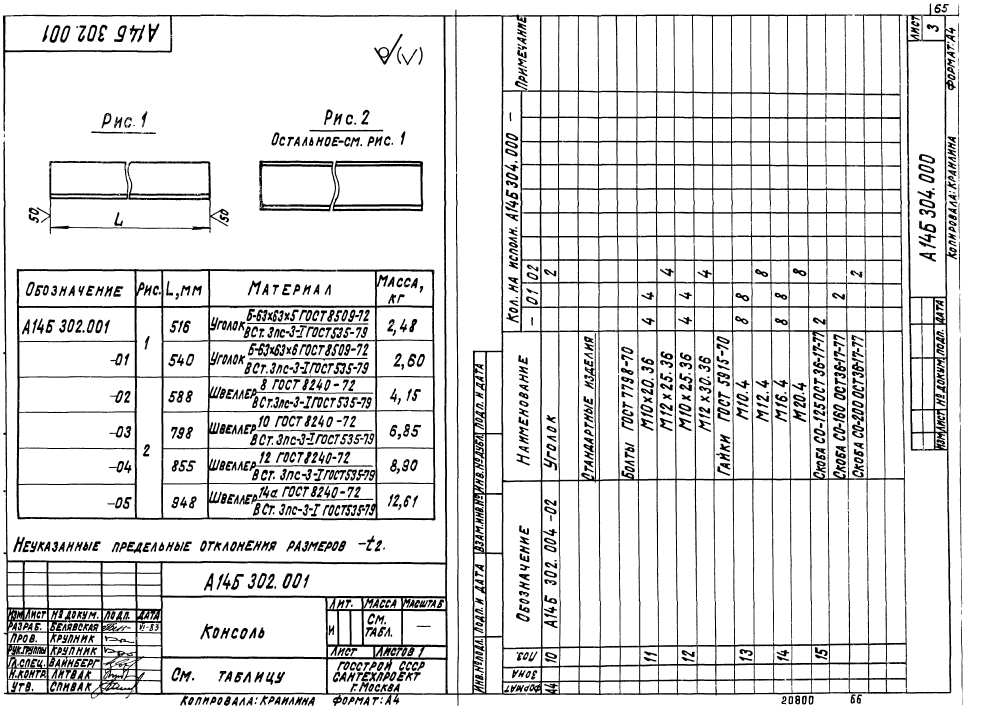 А14Б 302.001
Рис. 1
Рис. 2
Остальное-см. рис. 1
50
L
50
Обозначение Рис. L, мм Материал Масса, кг
А14Б 302.001 1 516 Уголок Б-63х63х5 ГОСТ 8509-72 / ВСт. 3пс-3-I ГОСТ 535-79 2,48
-01 540 Уголок Б-63х63х6 ГОСТ 8509-72 / ВСт. 3пс-3-I ГОСТ 535-79 2,60
-02 588 Швеллер 8 ГОСТ 8240-72 / ВСт. 3пс-3-I ГОСТ 535-79 4,15
-03 2 798 Швеллер 10 ГОСТ 8240-72 / ВСт. 3пс-3-I ГОСТ 535-79 6,85
-04 855 Швеллер 12 ГОСТ 8240-72 / ВСт. 3пс-3-I ГОСТ 535-79 8,90
-05 948 Швеллер 14а ГОСТ 8240-72 / ВСт. 3пс-3-I ГОСТ 535-79 12,61
Неуказанные предельные отклонения размеров -t2.
А14Б 302.001
Изм Лист № докум. Подп. Дата
Разраб. Белявская VI-83
Пров. Крупник
Рук.группы Крупник
Гл.спец. Вайнберг
Н.контр. Литвак
Утв. Спивак
Консоль
Лит. Масса Масштаб
И См. табл. —
Лист Листов 1
См. таблицу
Госстрой СССР
Сантехпроект
г. Москва
Копировала: Краилина Формат: А4
65
Формат Зона Поз. Обозначение Наименование Кол. на исполн. А14Б304.000 - Примечание
- 01 02
А4 10 А14Б 302.004-02 Уголок 2
Стандартные изделия
Болты ГОСТ 7798-70
11 М10х20.36 4 4
М12х25.36 4
12 М10х25.36 4 4
М12х30.36 4
Гайки ГОСТ 5915-70
13 М10.4 8 8
М12.4 8
14 М16.4 8 8
М20.4 8
15 Скоба СО-125 ОСТ36-17-77 2
Скоба СО-160 ОСТ36-17-77 2
Скоба СО-200 ОСТ36-17-77 2
Инв.№подл. Подп. и дата Взам.инв.№ Инв.№дубл. Подп. и дата
Изм Лист № докум. Подп. Дата
А14Б304.000
Лист
3
Копировала: Краилина Формат: А4
20800 66